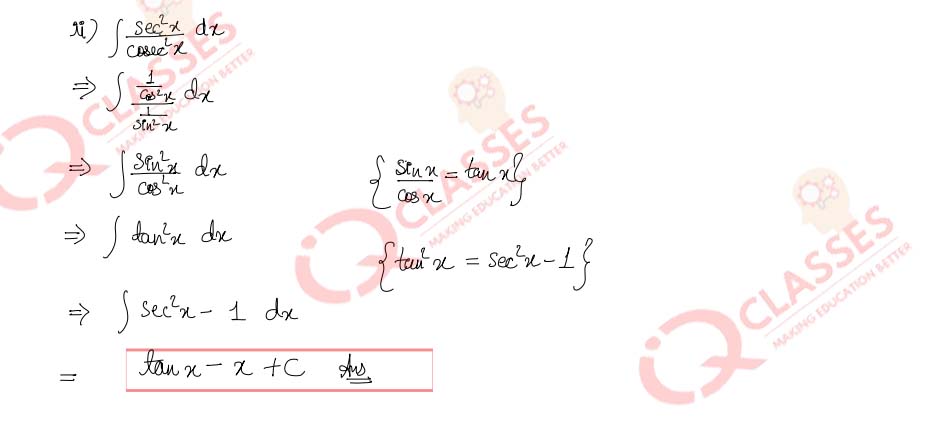 xi) ∫ sec²x / cosec²x dx
⇒ ∫ (1/cos²x) / (1/sin²x) dx
⇒ ∫ sin²x / cos²x dx { sin x / cos x = tan x }
⇒ ∫ tan²x dx
{ tan²x = sec²x - 1 }
⇒ ∫ sec²x - 1 dx
= tan x - x + C Ans
IQ CLASSES
MAKING EDUCATION BETTER
IQ CLASSES
MAKING EDUCATION BETTER
IQ CLASSES
MAKING EDUCATION BETTER